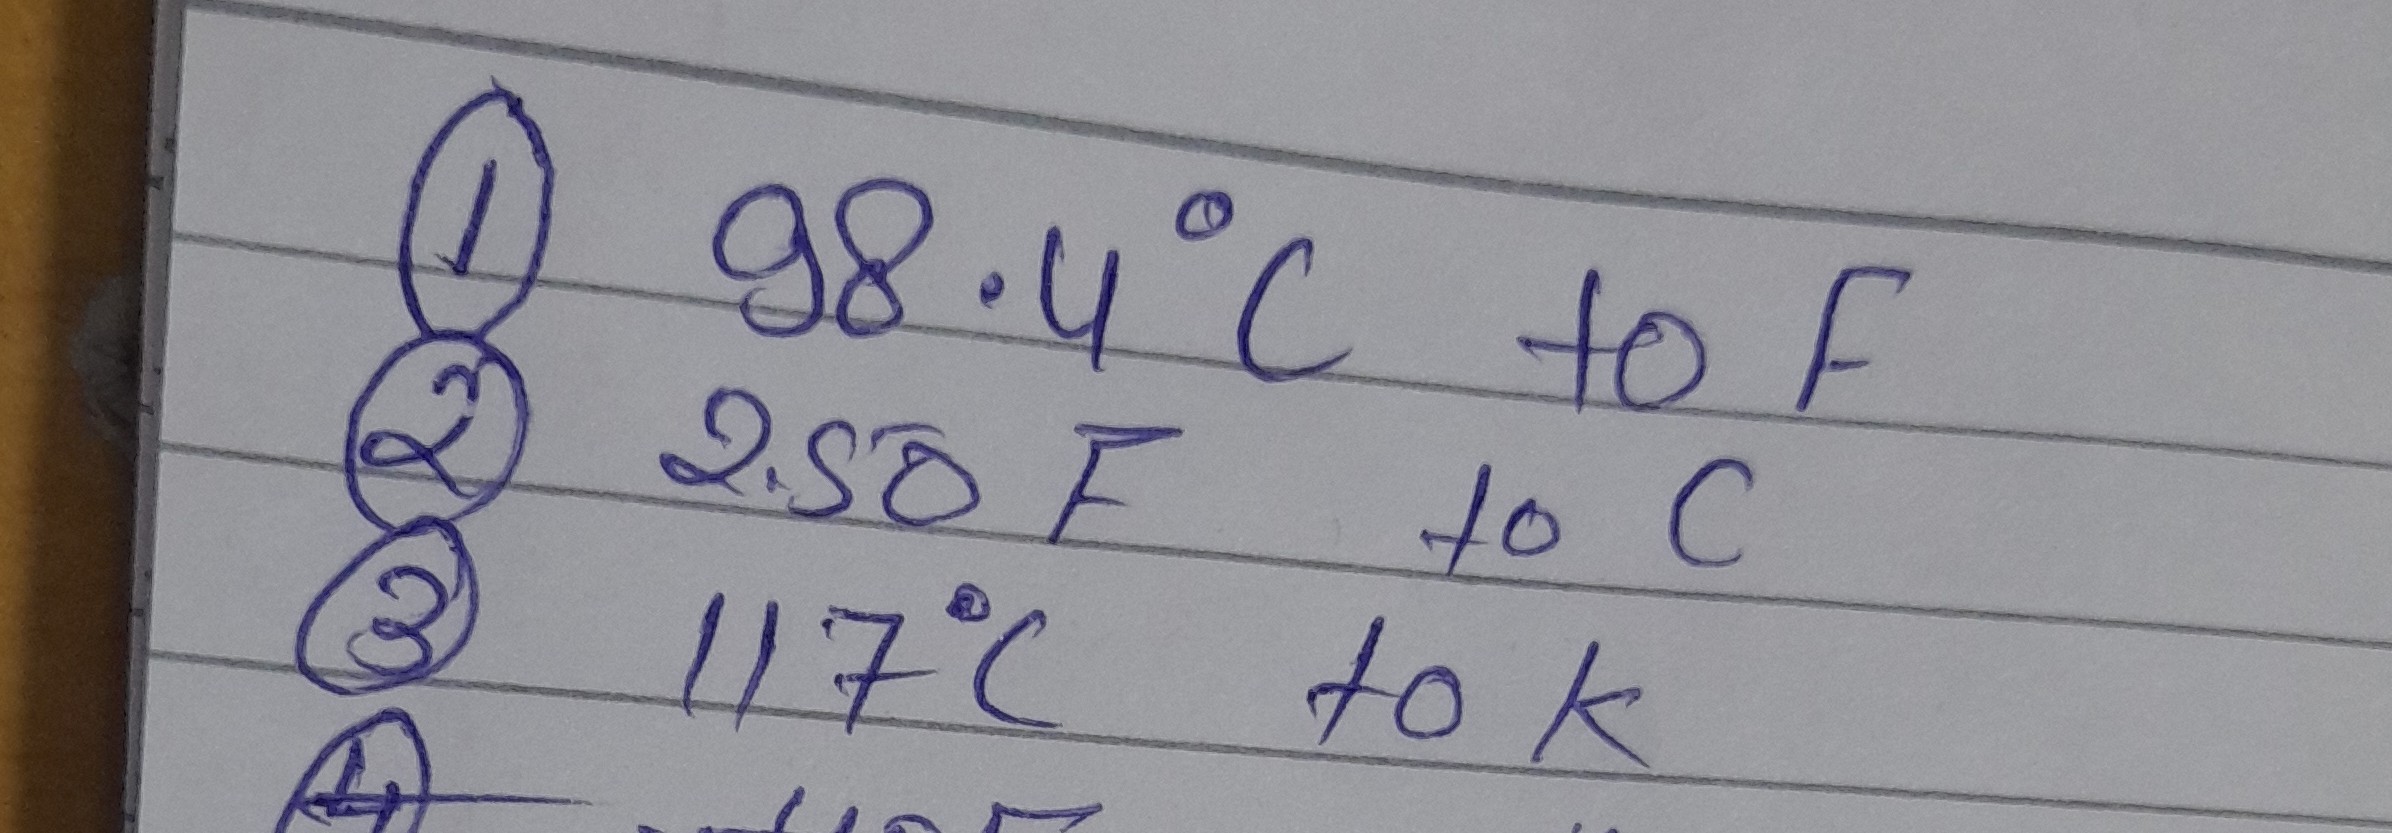 ① 98.4°C to F
② 2.50 F to C
③ 117°C to K
④